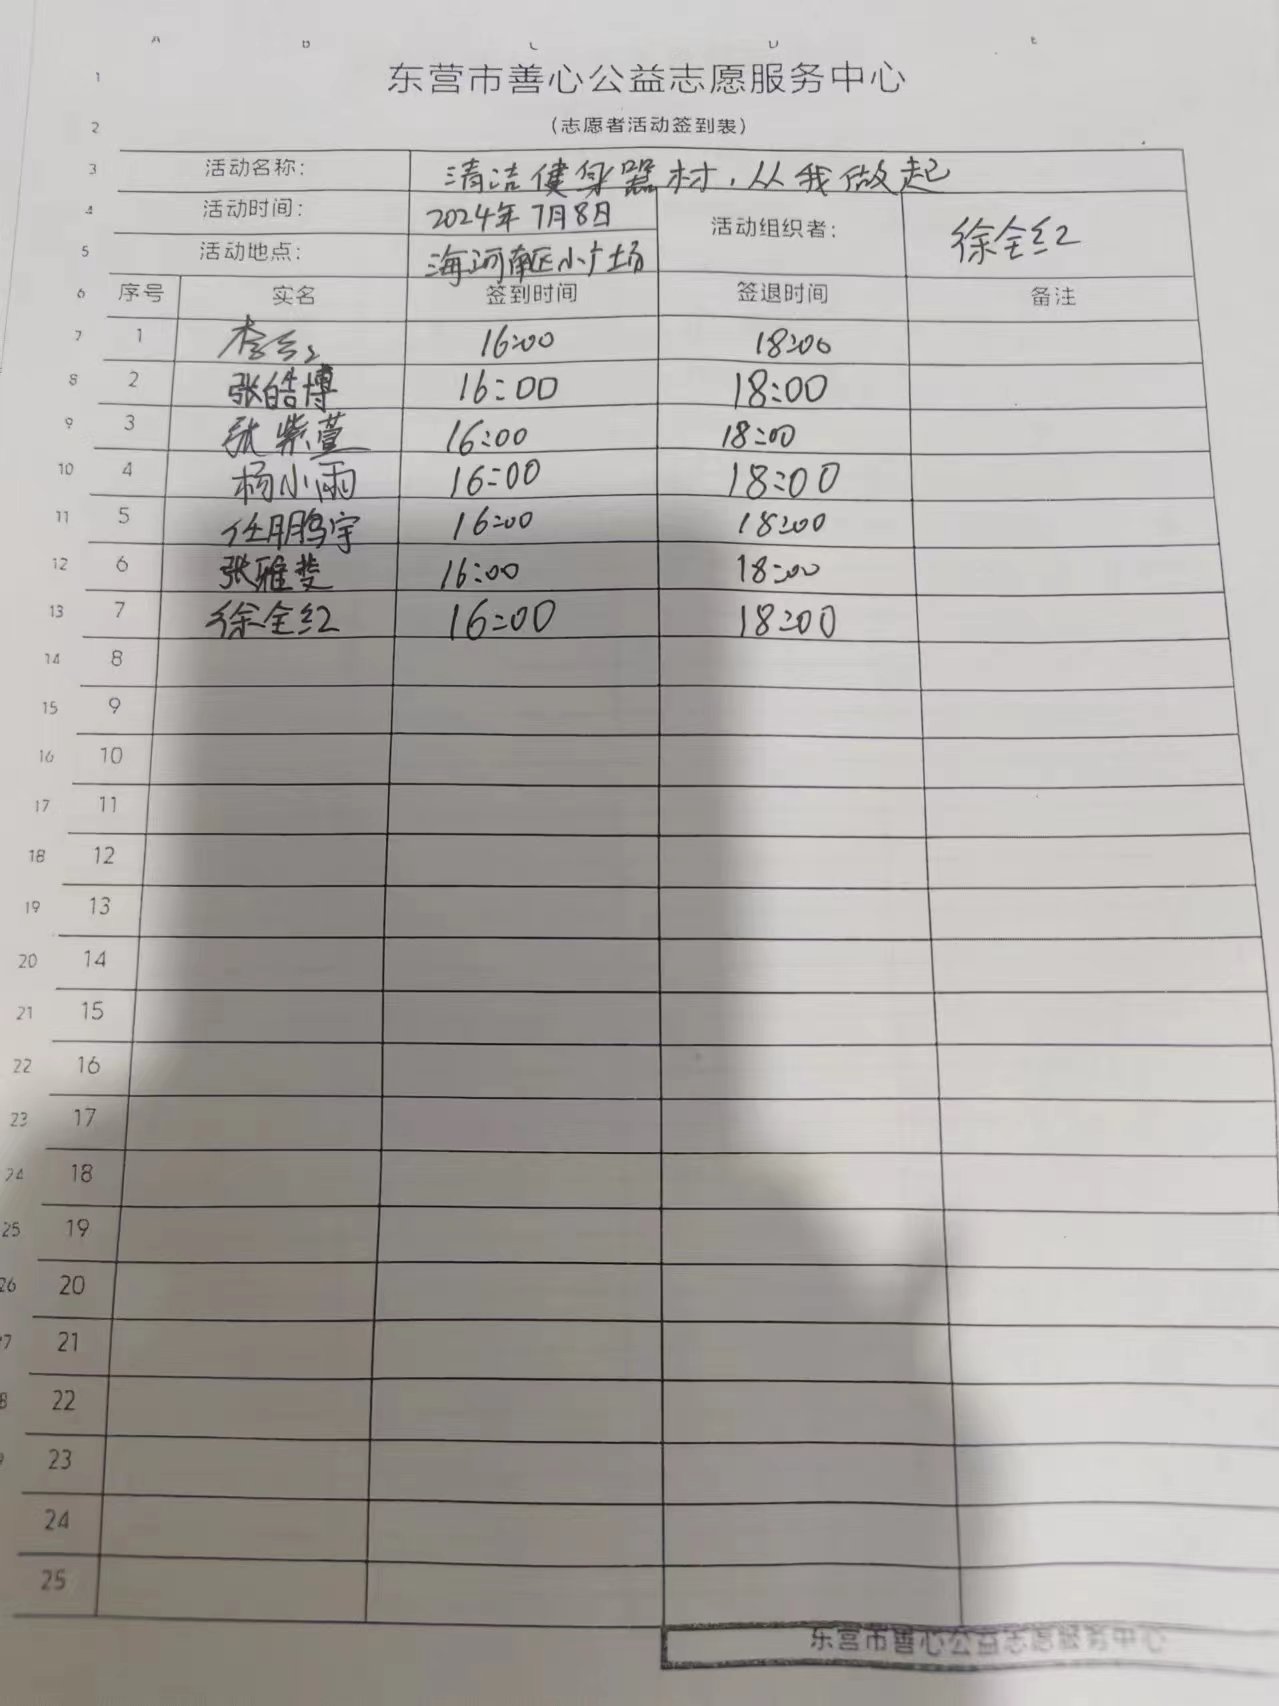 A B C D E
1 东营市善心公益志愿服务中心
2 (志愿者活动签到表)
3 活动名称: 清洁健身器材,从我做起
4 活动时间: 2024年7月8日 活动组织者: 徐全红
5 活动地点: 海河南区小广场
6 序号 实名 签到时间 签退时间 备注
7 1 16:00 18:00
8 2 张皓博 16:00 18:00
9 3 张紫萱 16:00 18:00
10 4 杨小雨 16:00 18:00
11 5 任鹏宇 16:00 18:00
12 6 张雅斐 16:00 18:00
13 7 徐全红 16:00 18:00
14 8
15 9
16 10
17 11
18 12
19 13
20 14
21 15
22 16
23 17
24 18
25 19
26 20
7 21
8 22
9 23
24
25
东营市善心公益志愿服务中心